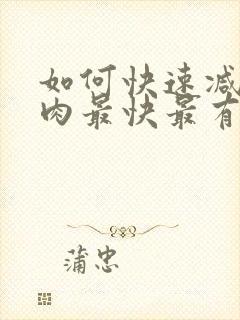 如何快速减
肉最快最有
蒲忠